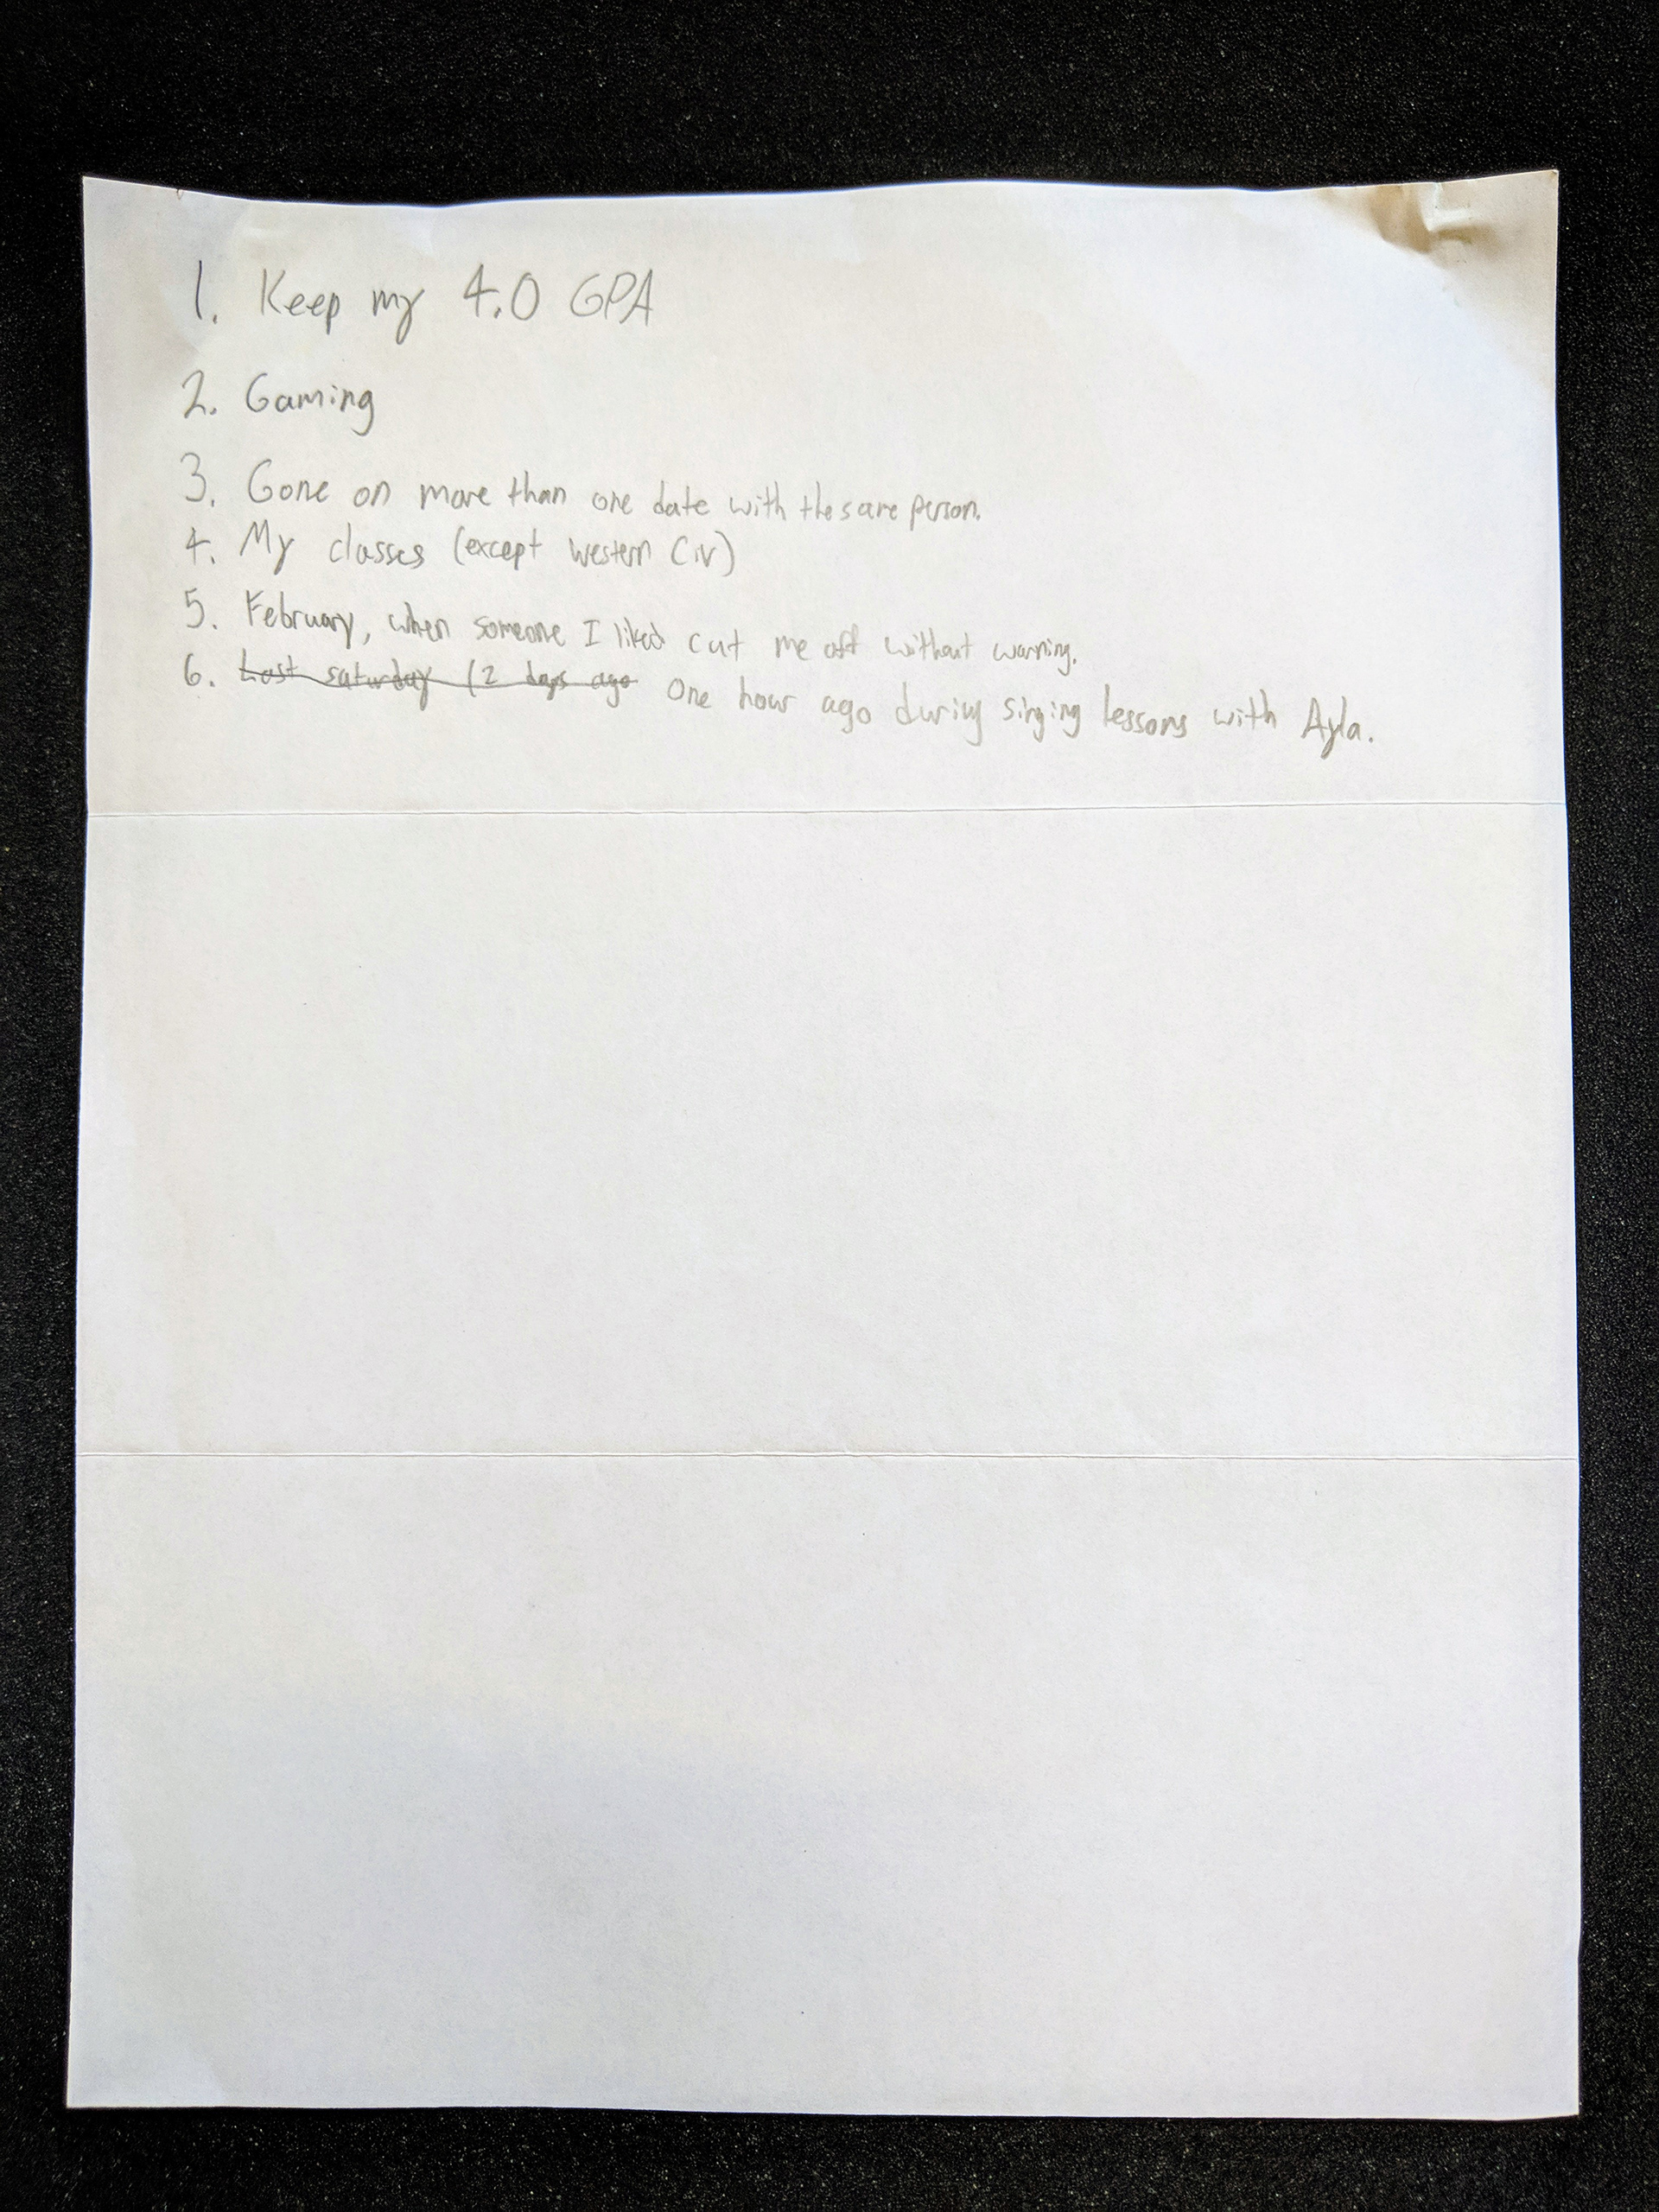 1. Keep my 4.0 GPA
2. Gaming
3. Gone on more than one date with the same person.
4. My classes (except Western Civ)
5. February, when someone I liked cut me off without warning.
6. Last saturday (2 days ago One hour ago during singing lessons with Ayla.